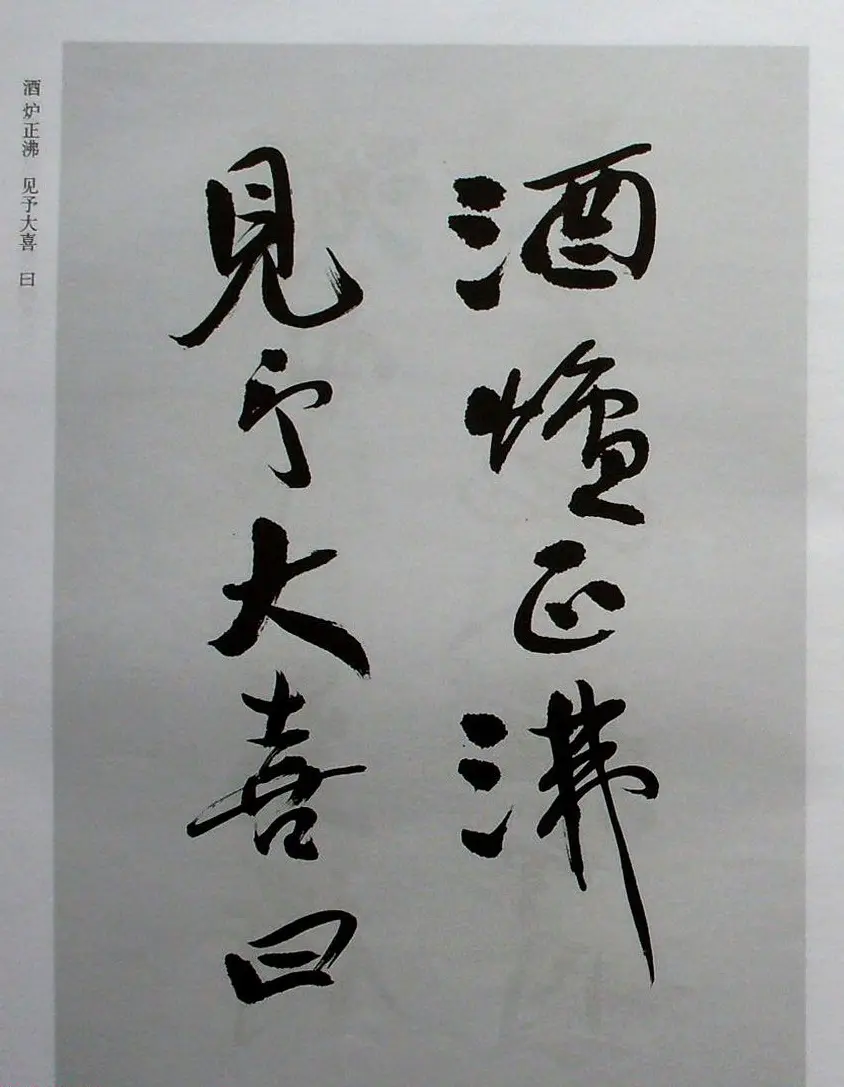 酒爐正沸
見予大喜曰
酒炉正沸 见予大喜 曰